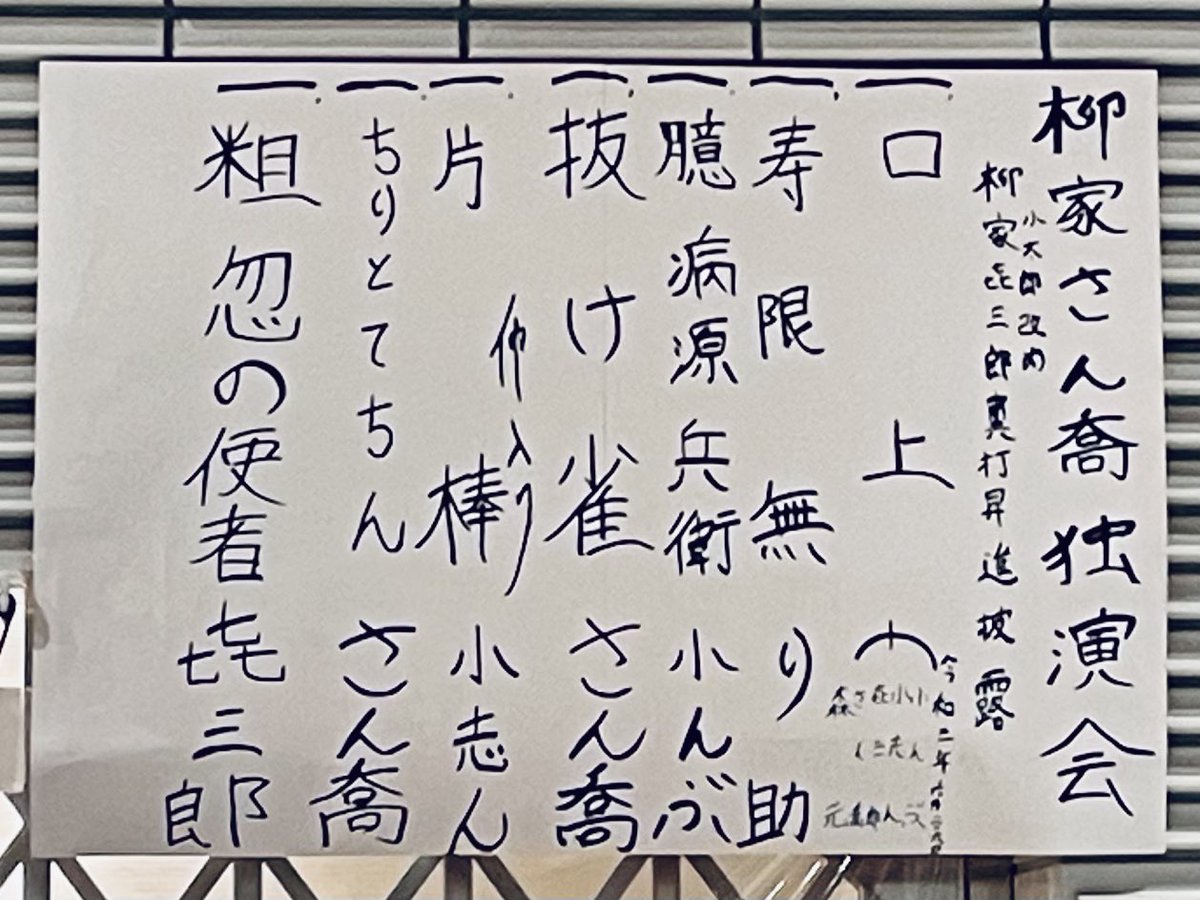 柳家さん喬独演会
小太郎改め
柳家㐂三郎真打昇進披露
一、口上
令和三年六月
小んぶ
小志ん
㐂三郎
さん喬
一、寿限無 り助
一、臆病源兵衛 小んぶ
一、抜け雀 さん喬
一、片棒 小志ん
仲入り
一、ちりとてちん さん喬
一、粗忽の使者 㐂三郎